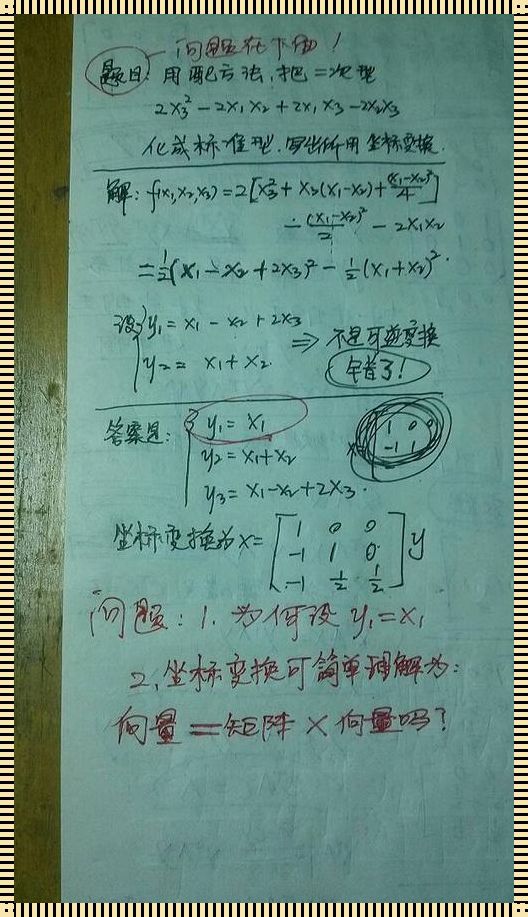 问题在下面！
题目：用配方法，把二次型
2x₃² - 2x₁x₂ + 2x₁x₃ - 2x₂x₃
化成标准型．写出所用坐标变换．
解：f(x₁,x₂,x₃) = 2[x₃² + x₃(x₁-x₂) + (x₁-x₂)²/4]
- (x₁-x₂)²/2 - 2x₁x₂
= ½(x₁ - x₂ + 2x₃)² - ½(x₁+x₂)².
设{ y₁ = x₁ - x₂ + 2x₃
y₂ = x₁ + x₂
⇒ 不是可逆变换
错了！
答案是：{ y₁ = x₁
y₂ = x₁+x₂
y₃ = x₁-x₂+2x₃.
1 0 0
-1 1
坐标变换为 x = [1 0 0
-1 1 0
-1 ½ ½] y
问题：1. 为何设 y₁=x₁
2. 坐标变换可简单理解为：
向量 = 矩阵 × 向量吗？